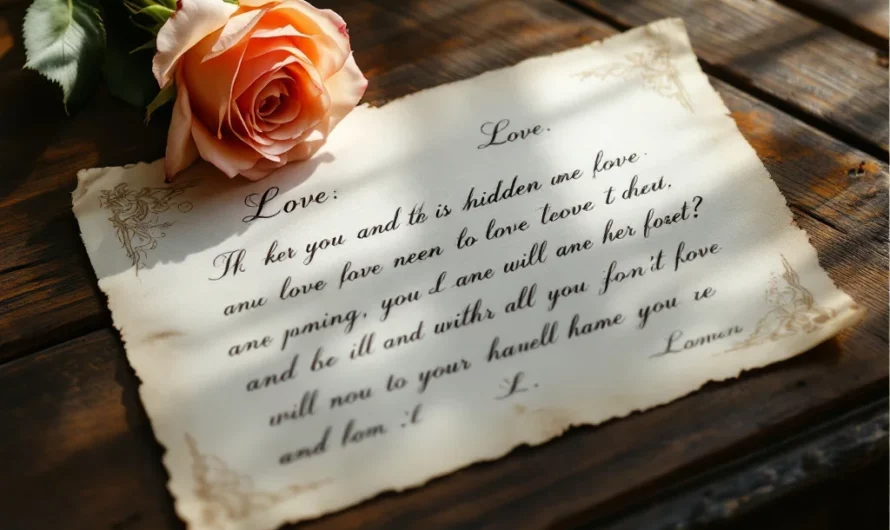 Love.
Love:
Th ker you and th is hidden ume fove.
anu love fove neen to love teove t dheu,
ane pomining, you I ane will ane her foset?
and be ill and withr all you fon't fove
will nou to your hauell hame you re
Lomen
and lom :l
L.